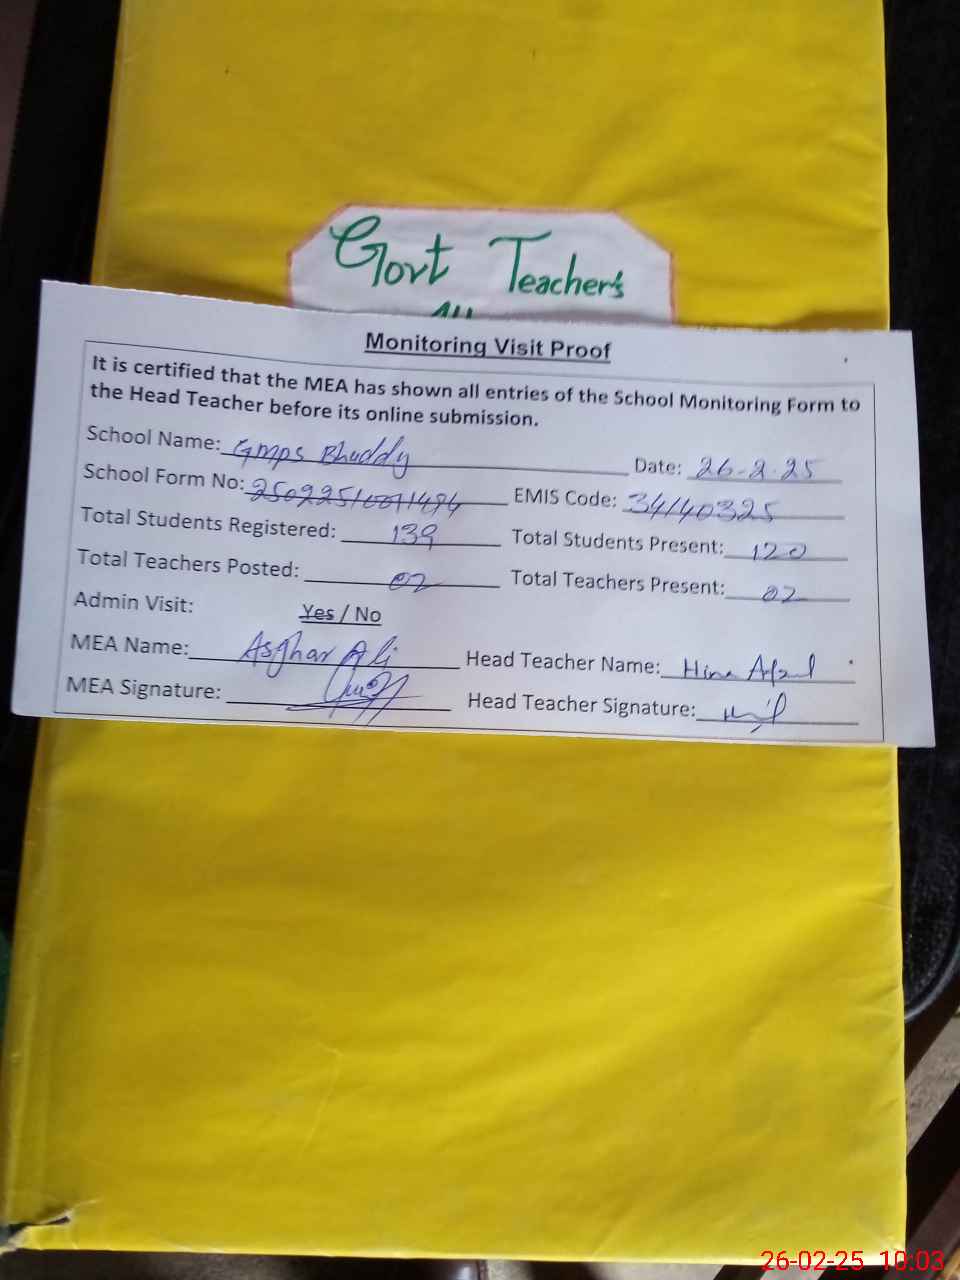 Govt Teacher's
Monitoring Visit Proof
It is certified that the MEA has shown all entries of the School Monitoring Form to
the Head Teacher before its online submission.
School Name: GMPS Bhuddy Date: 26-2-25
School Form No: EMIS Code: 34140325
Total Students Registered: 139 Total Students Present: 120
Total Teachers Posted: 02 Total Teachers Present: 02
Admin Visit: Yes / No
MEA Name: Asghar Ali Head Teacher Name: Hina Afzal
MEA Signature: Head Teacher Signature:
26-02-25 10:03